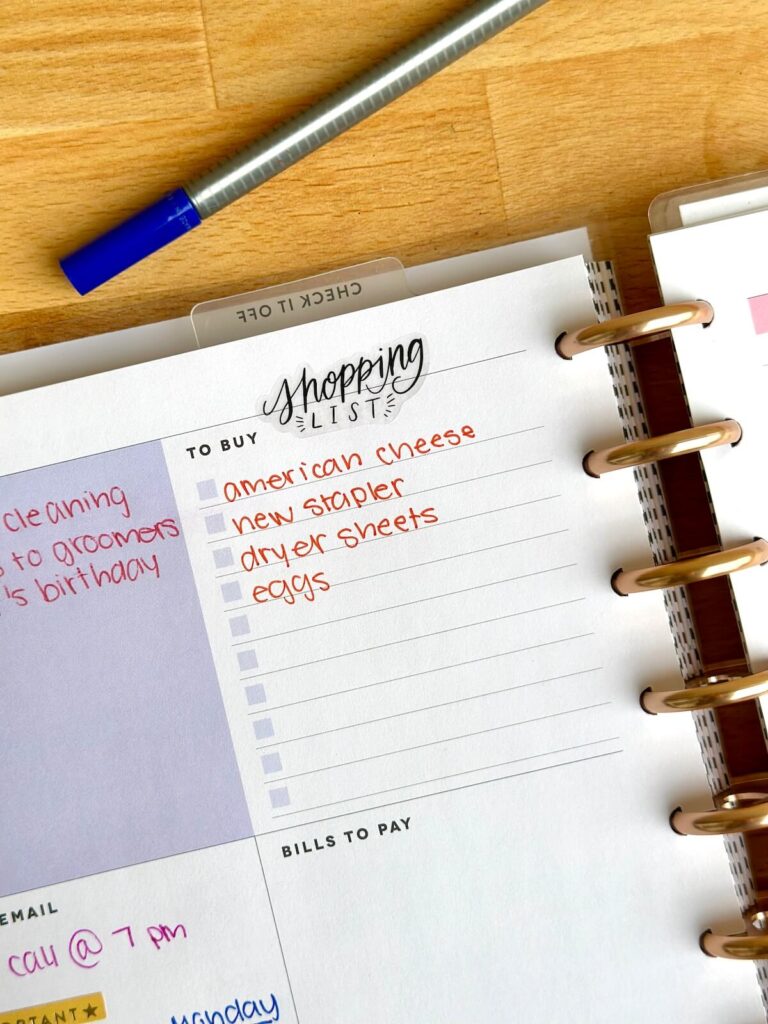 CHECK IT OFF
shopping
LIST
TO BUY
american cheese
new stapler
dryer sheets
eggs
cleaning
to groomers
's birthday
BILLS TO PAY
EMAIL
call @ 7 pm
Monday